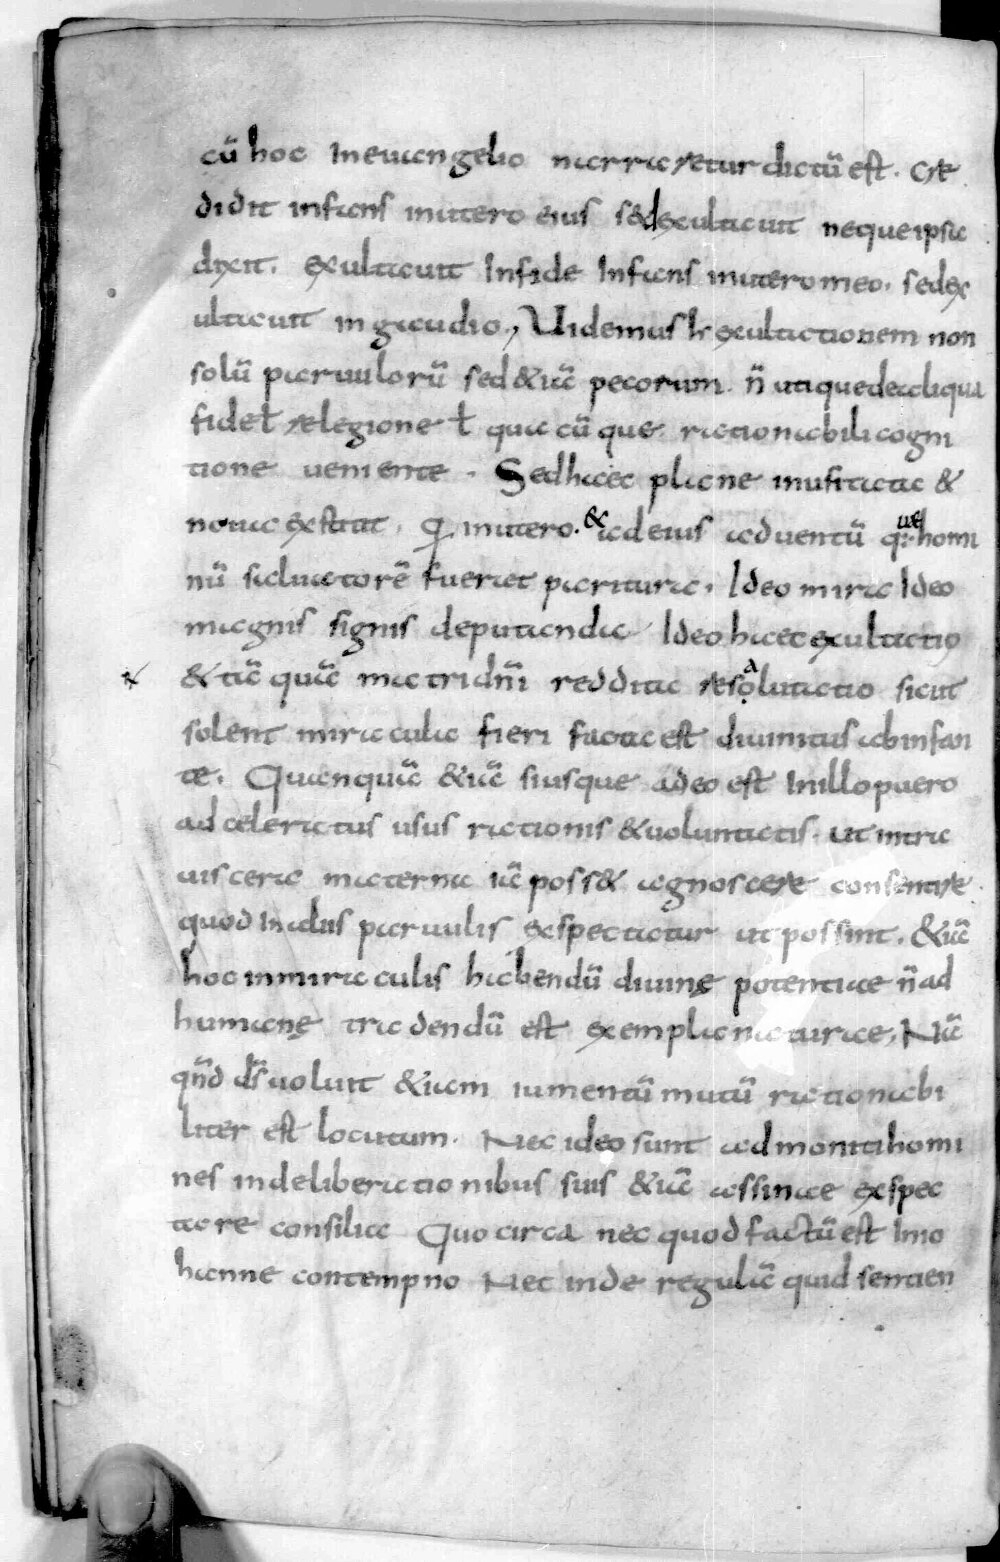 cū hoc Ineuangelio narraretur dictū est. Cre
didit infans inutero eius s&exultauit neque ipsa
dixit. exultauit Infide Infans inutero meo. sedex
ultauit in gaudio., Uidemus h exultationem non
solū paruulorū sed &iā pecorum. n̄ utique dealiqua
fide ł relegione ł qua cū que rationabili cogni
tione uemente. Sed haec plane inusitata &
noua exstitit. q inutero. & ad eius aduentū q:ue homi
nū saluatorē fueret paritura. Ideo mira Ideo
magnis signis deputanda Ideo haec exultatio
& tā quā matri dn̄i reddita resoalutatio sicut
solent miracula fieri facta est diuinitus abinfan
te. Quanquā &iā siusque adeo est Inillo puero
ad celeratus usus rationis &uoluntatis. ut intra
uiscera materna iā poss& agnoscere consentire.
quod Inaliis paruulis exspectatur ut possint. &iā
hoc inmiraculis habendū diuinę potentiae n̄ ad
humanę tradendū est exempla naturae, Nā
qn̄d ds̄ uoluit &iam iumentū mutū rationabi
liter est locutum. Nec ideo sunt admoniti homi
nes indeliberationibus suis &iā assinae exspec
tare consilia Quocirca nec quod factū est Inio
hanne contempno Nec inde regulā quid sentien